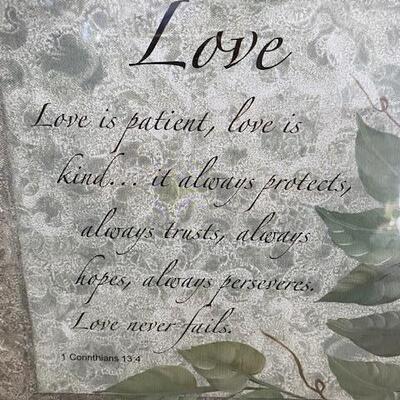 Love
Love is patient, love is
kind... it always protects,
always trusts, always
hopes, always perseveres.
Love never fails.
1 Corinthians 13:4